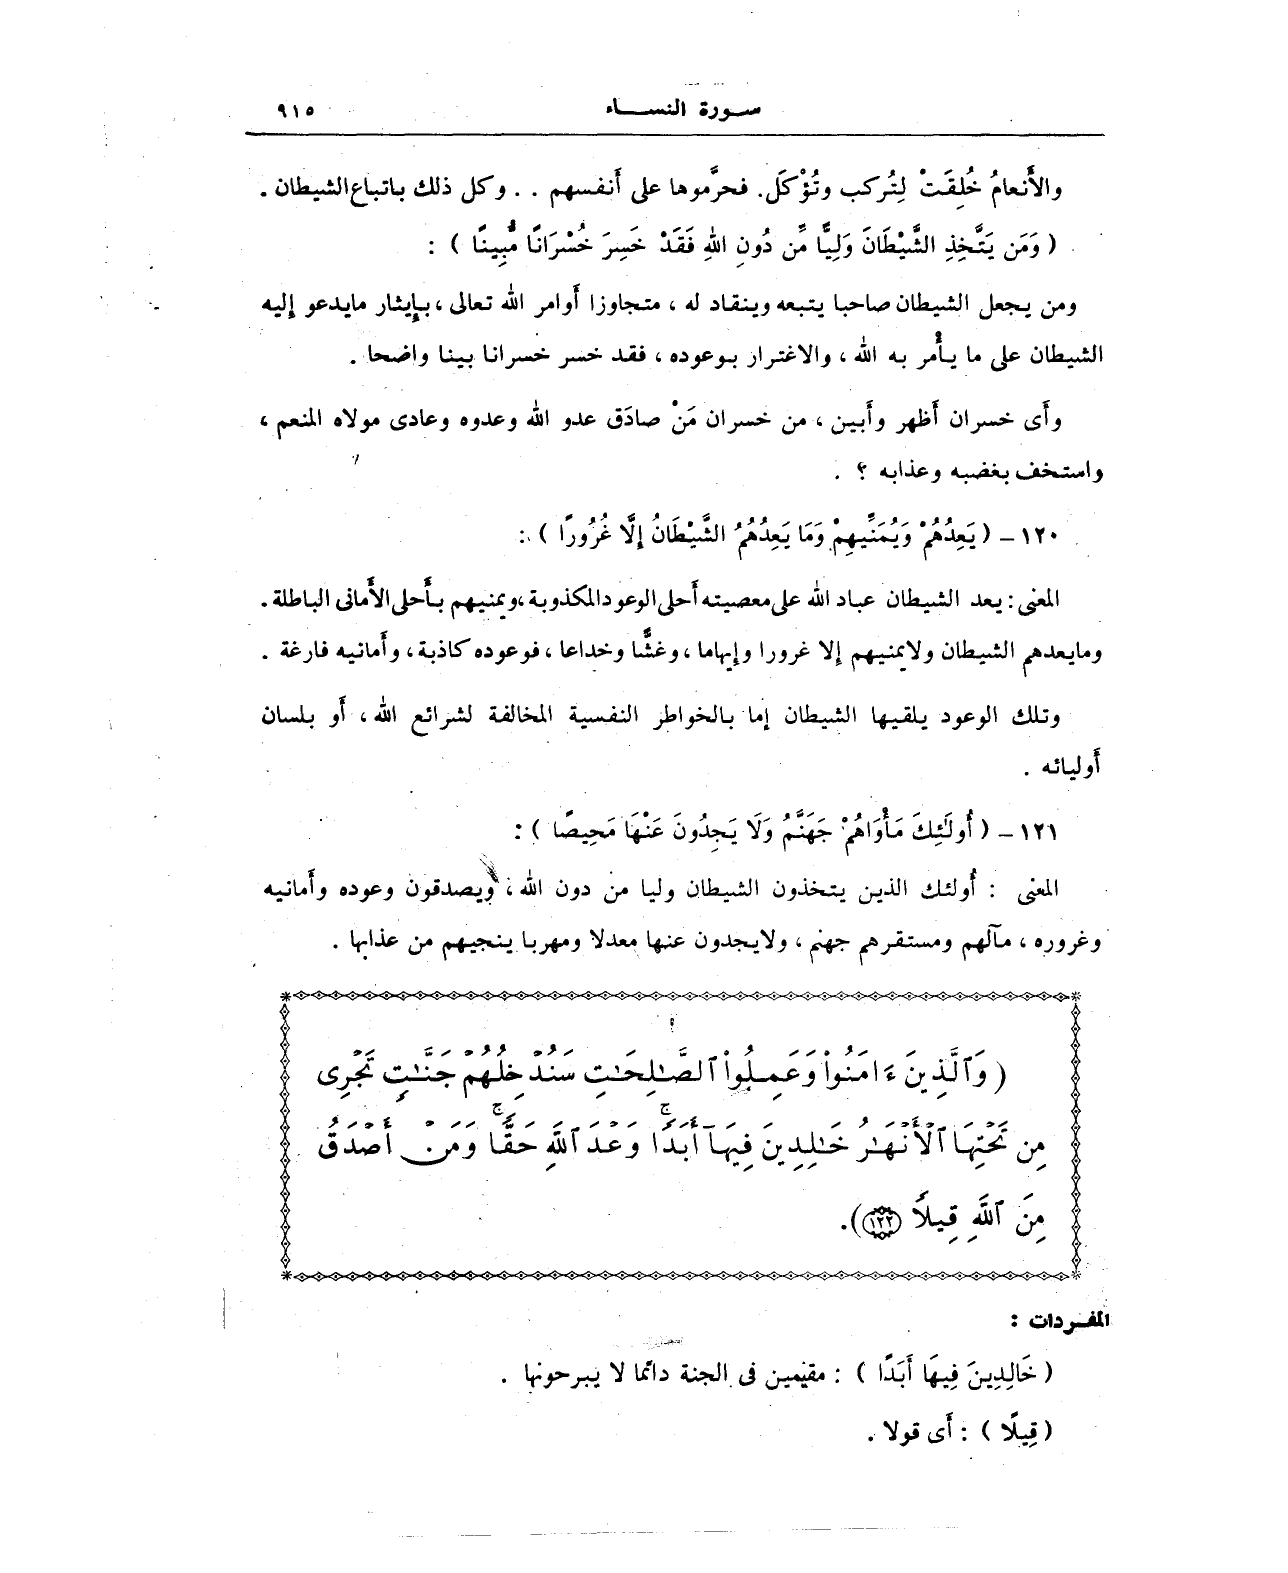 سورة النساء ٩١٥
والأَنعامُ خُلِقَتْ لِتُركب وتُؤْكَل. فحرَّموها على أَنفسهم . . وكل ذلك باتباع الشيطان .
( وَمَن يَتَّخِذِ الشَّيْطَانَ وَلِيًّا مِّن دُونِ اللهِ فَقَدْ خَسِرَ خُسْرَانًا مُّبِينًا ) :
ومن يجعل الشيطان صاحبا يتبعه وينقاد له ، متجاوزا أَوامر الله تعالى ، بإِيثار مايدعو إِليه
الشيطان على ما يأْمر به الله ، والاغترار بوعوده ، فقد خسر خسرانا بينا واضحا .
وأَى خسران أَظهر وأَبين ، من خسران مَنْ صادَق عدو الله وعدوه وعادى مولاه المنعم ،
واستخف بغضبه وعذابه ؟ .
١٢٠ – ( يَعِدُهُمْ وَيُمَنِّيهِمْ وَمَا يَعِدُهُمُ الشَّيْطَانُ إِلَّا غُرُورًا ) :
المعنى : يعد الشيطان عباد الله على معصيته أَحلى الوعود المكذوبة ، ويمنيهم بأَحلى الأَمانى الباطلة .
ومايعدهم الشيطان ولايمنيهم إِلا غرورا وإِيهاما ، وغشًّا وخداعا ، فوعوده كاذبة ، وأَمانيه فارغة .
وتلك الوعود يلقيها الشيطان إِما بالخواطر النفسية المخالفة لشرائع الله ، أَو بلسان
أَوليائه .
١٢١ – ( أُولَٰئِكَ مَأْوَاهُمْ جَهَنَّمُ وَلَا يَجِدُونَ عَنْهَا مَحِيصًا ) :
المعنى : أُولئك الذين يتخذون الشيطان وليا من دون الله ، ويصدقون وعوده وأَمانيه
وغروره ، مآلهم ومستقرهم جهنم ، ولايجدون عنها معدلا ومهربا ينجيهم من عذابها .
( وَٱلَّذِينَ ءَامَنُوا۟ وَعَمِلُوا۟ ٱلصَّـٰلِحَـٰتِ سَنُدْخِلُهُمْ جَنَّـٰتٍ تَجْرِى
مِن تَحْتِهَا ٱلْأَنْهَـٰرُ خَـٰلِدِينَ فِيهَآ أَبَدًا ۖ وَعْدَ ٱللَّهِ حَقًّا ۚ وَمَنْ أَصْدَقُ
مِنَ ٱللَّهِ قِيلًا ١٢٢) .
المفردات :
( خَالِدِينَ فِيهَا أَبَدًا ) : مقيمين فى الجنة دائما لا يبرحونها .
( قِيلًا ) : أَى قولا .